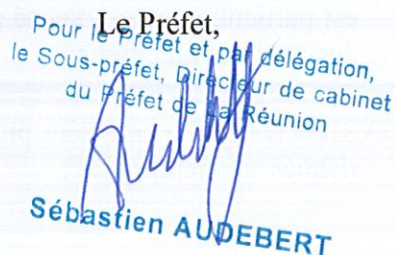 Le Préfet,
Pour le Préfet et par délégation,
le Sous-préfet, Directeur de cabinet
du Préfet de La Réunion
Sébastien AUDEBERT